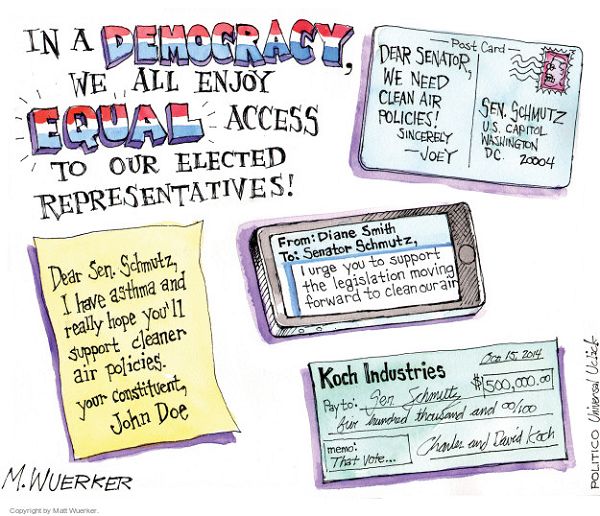 IN A DEMOCRACY,
WE ALL ENJOY
EQUAL ACCESS
TO OUR ELECTED
REPRESENTATIVES!
Post Card
DEAR SENATOR,
WE NEED
CLEAN AIR
POLICIES!
SINCERELY
—JOEY
SEN. SCHMUTZ
U.S. CAPITOL
WASHINGTON
DC. 20004
From: Diane Smith
To: Senator Schmutz,
I urge you to support
the legislation moving
forward to clean our air
Dear Sen. Schmutz,
I have asthma and
really hope you'll
support cleaner
air policies.
your constituent,
John Doe
Koch Industries
Oct 15, 2014
Pay to: Sen Schmutz
$500,000.00
five hundred thousand and 00/100
memo:
That Vote...
Charles and David Koch
M. WUERKER
POLITICO Universal Uclick
Copyright by Matt Wuerker.